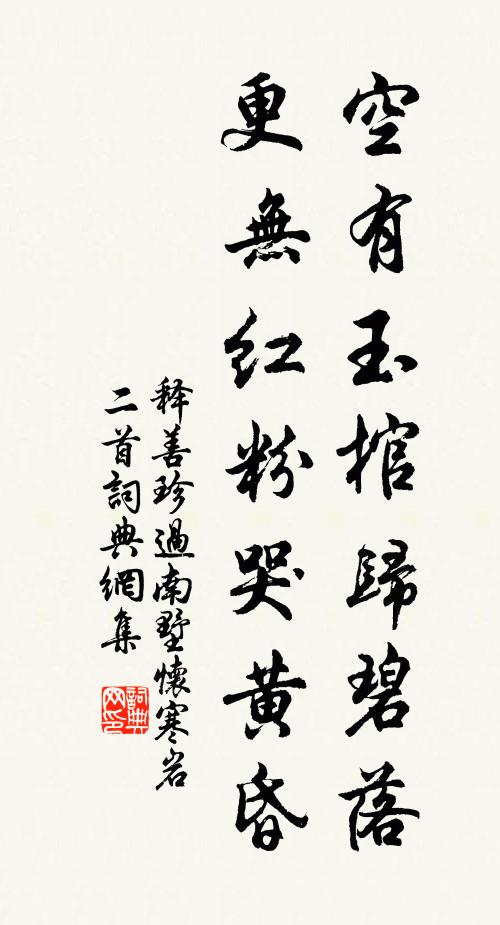 空有玉棺歸碧落
更無紅粉哭黄昏
释善珍過南墅懷寒岩
二首詞典網集
詞典网印